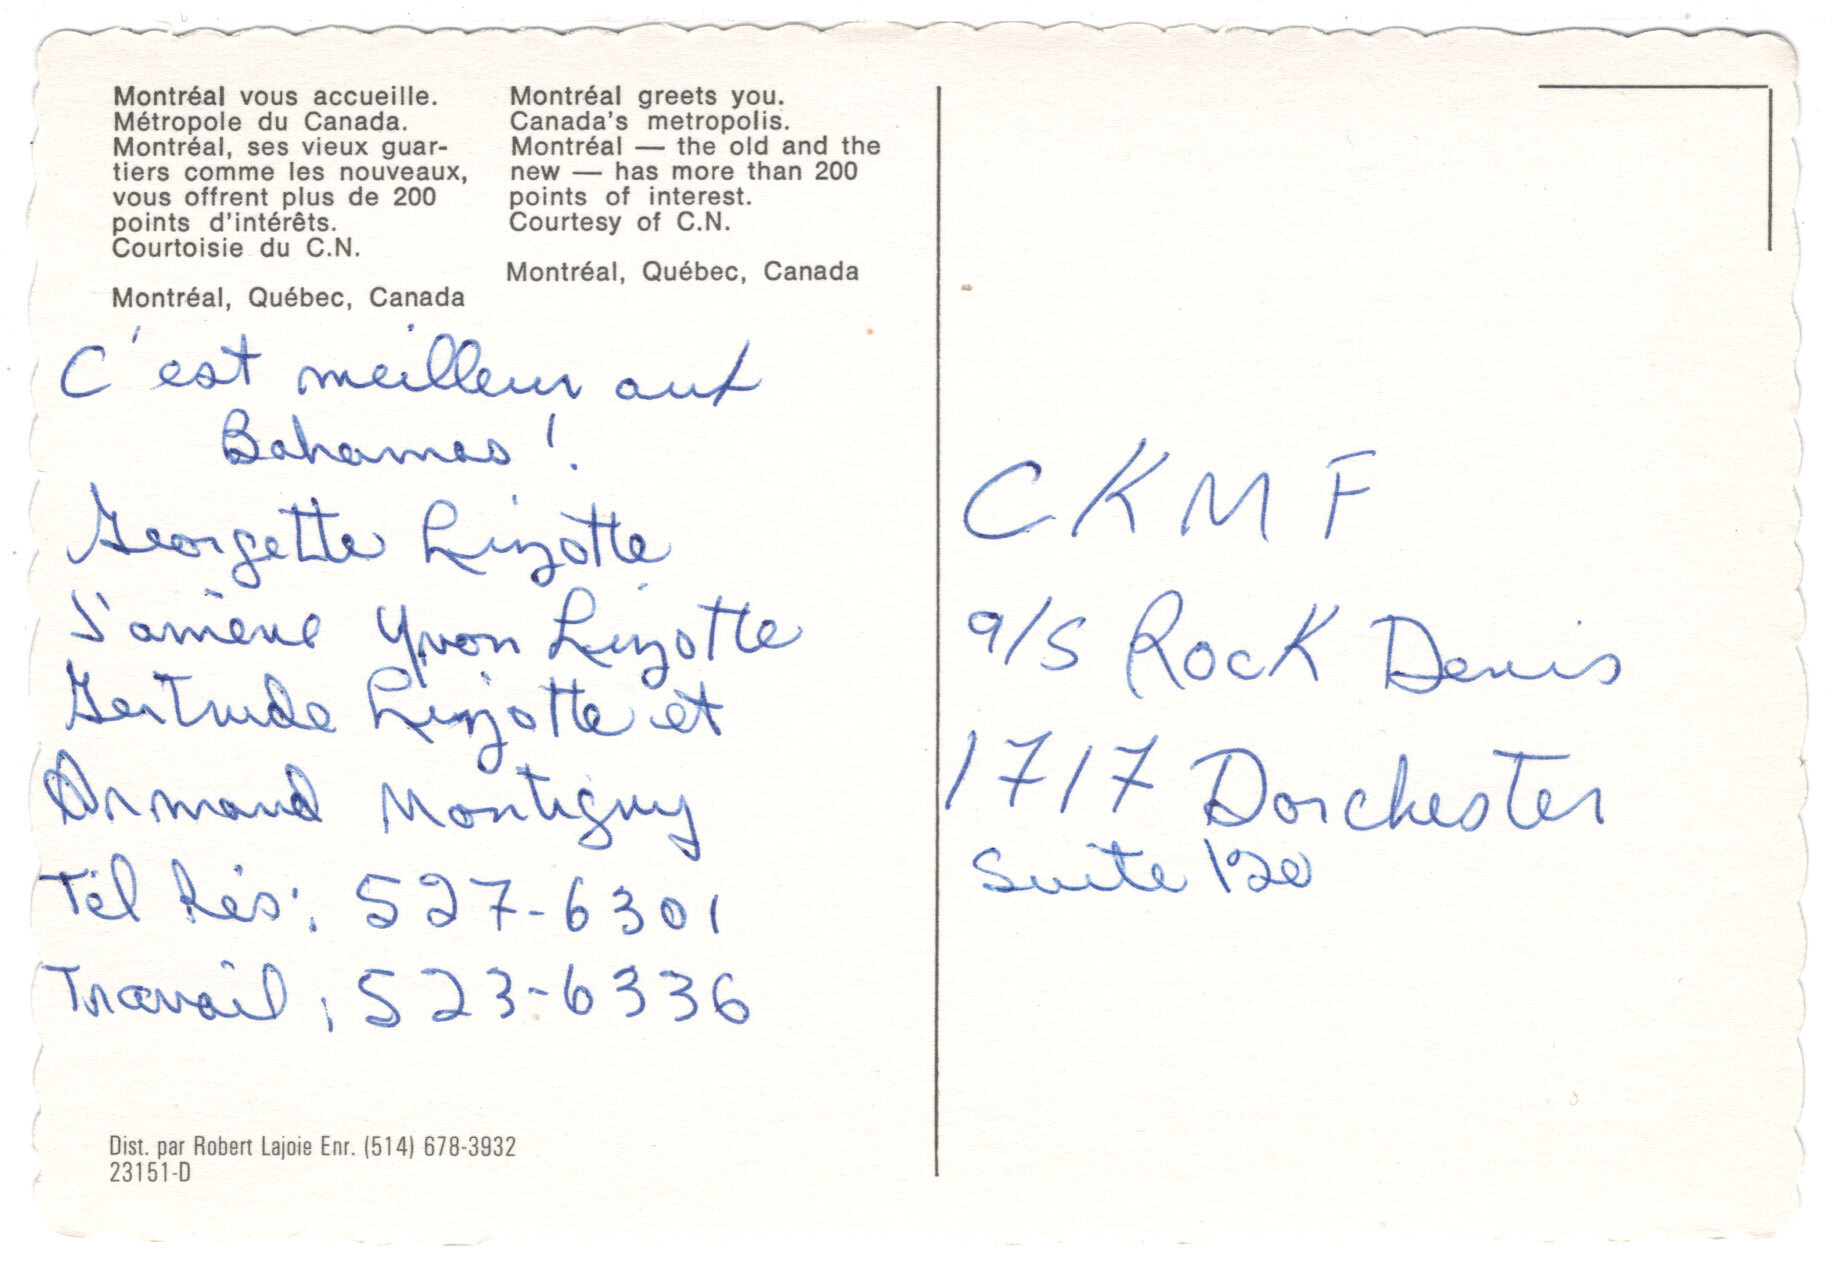 Montréal vous accueille.
Métropole du Canada.
Montréal, ses vieux guar-
tiers comme les nouveaux,
vous offrent plus de 200
points d'intérêts.
Courtoisie du C.N.
Montréal, Québec, Canada
Montréal greets you.
Canada's metropolis.
Montréal — the old and the
new — has more than 200
points of interest.
Courtesy of C.N.
Montréal, Québec, Canada
C'est meilleur aux
Bahamas!
Georgette Lizotte
J'amène Yvon Lizotte
Gertrude Lizotte et
Armand Montigny
Tél Rés: 527-6301
Travail: 523-6336
Dist. par Robert Lajoie Enr. (514) 678-3932
23151-D
CKMF
a/s Rock Denis
1717 Dorchester
Suite 120